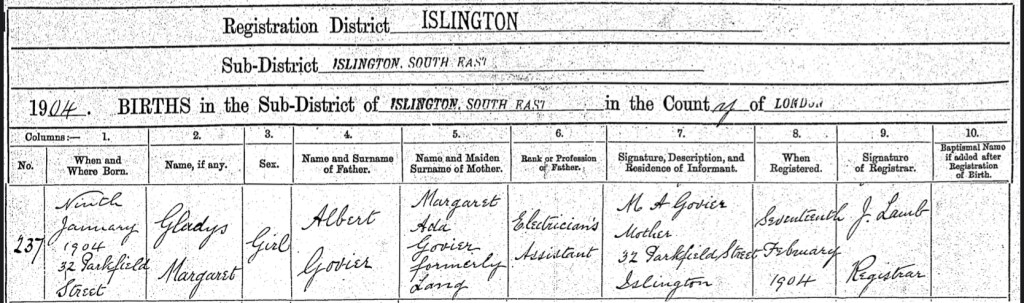 Registration District ISLINGTON
Sub-District ISLINGTON, SOUTH EAST
1904. BIRTHS in the Sub-District of ISLINGTON, SOUTH EAST in the County of LONDON
Columns:— 1. 2. 3. 4. 5. 6. 7. 8. 9. 10.
No. When and Where Born. Name, if any. Sex. Name and Surname of Father. Name and Maiden Surname of Mother. Rank or Profession of Father. Signature, Description, and Residence of Informant. When Registered. Signature of Registrar. Baptismal Name if added after Registration of Birth.
237
Ninth
January
1904
32 Parkfield
Street
Gladys
Margaret
Girl
Albert
Govier
Margaret
Ada
Govier
formerly
Lang
Electrician's
Assistant
M A Govier
Mother
32 Parkfield Street
Islington
Seventeenth
February
1904
J. Lamb
Registrar